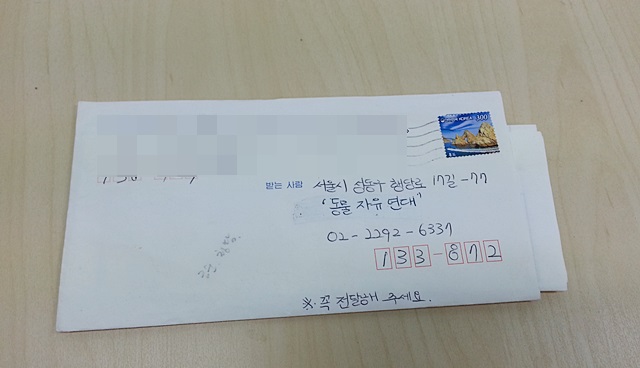 KOREA 300
받는 사람 서울시 성동구 행당로 17길-77
'동물 자유 연대'
02-2292-6337
133-872
※. 꼭 전달해 주세요.